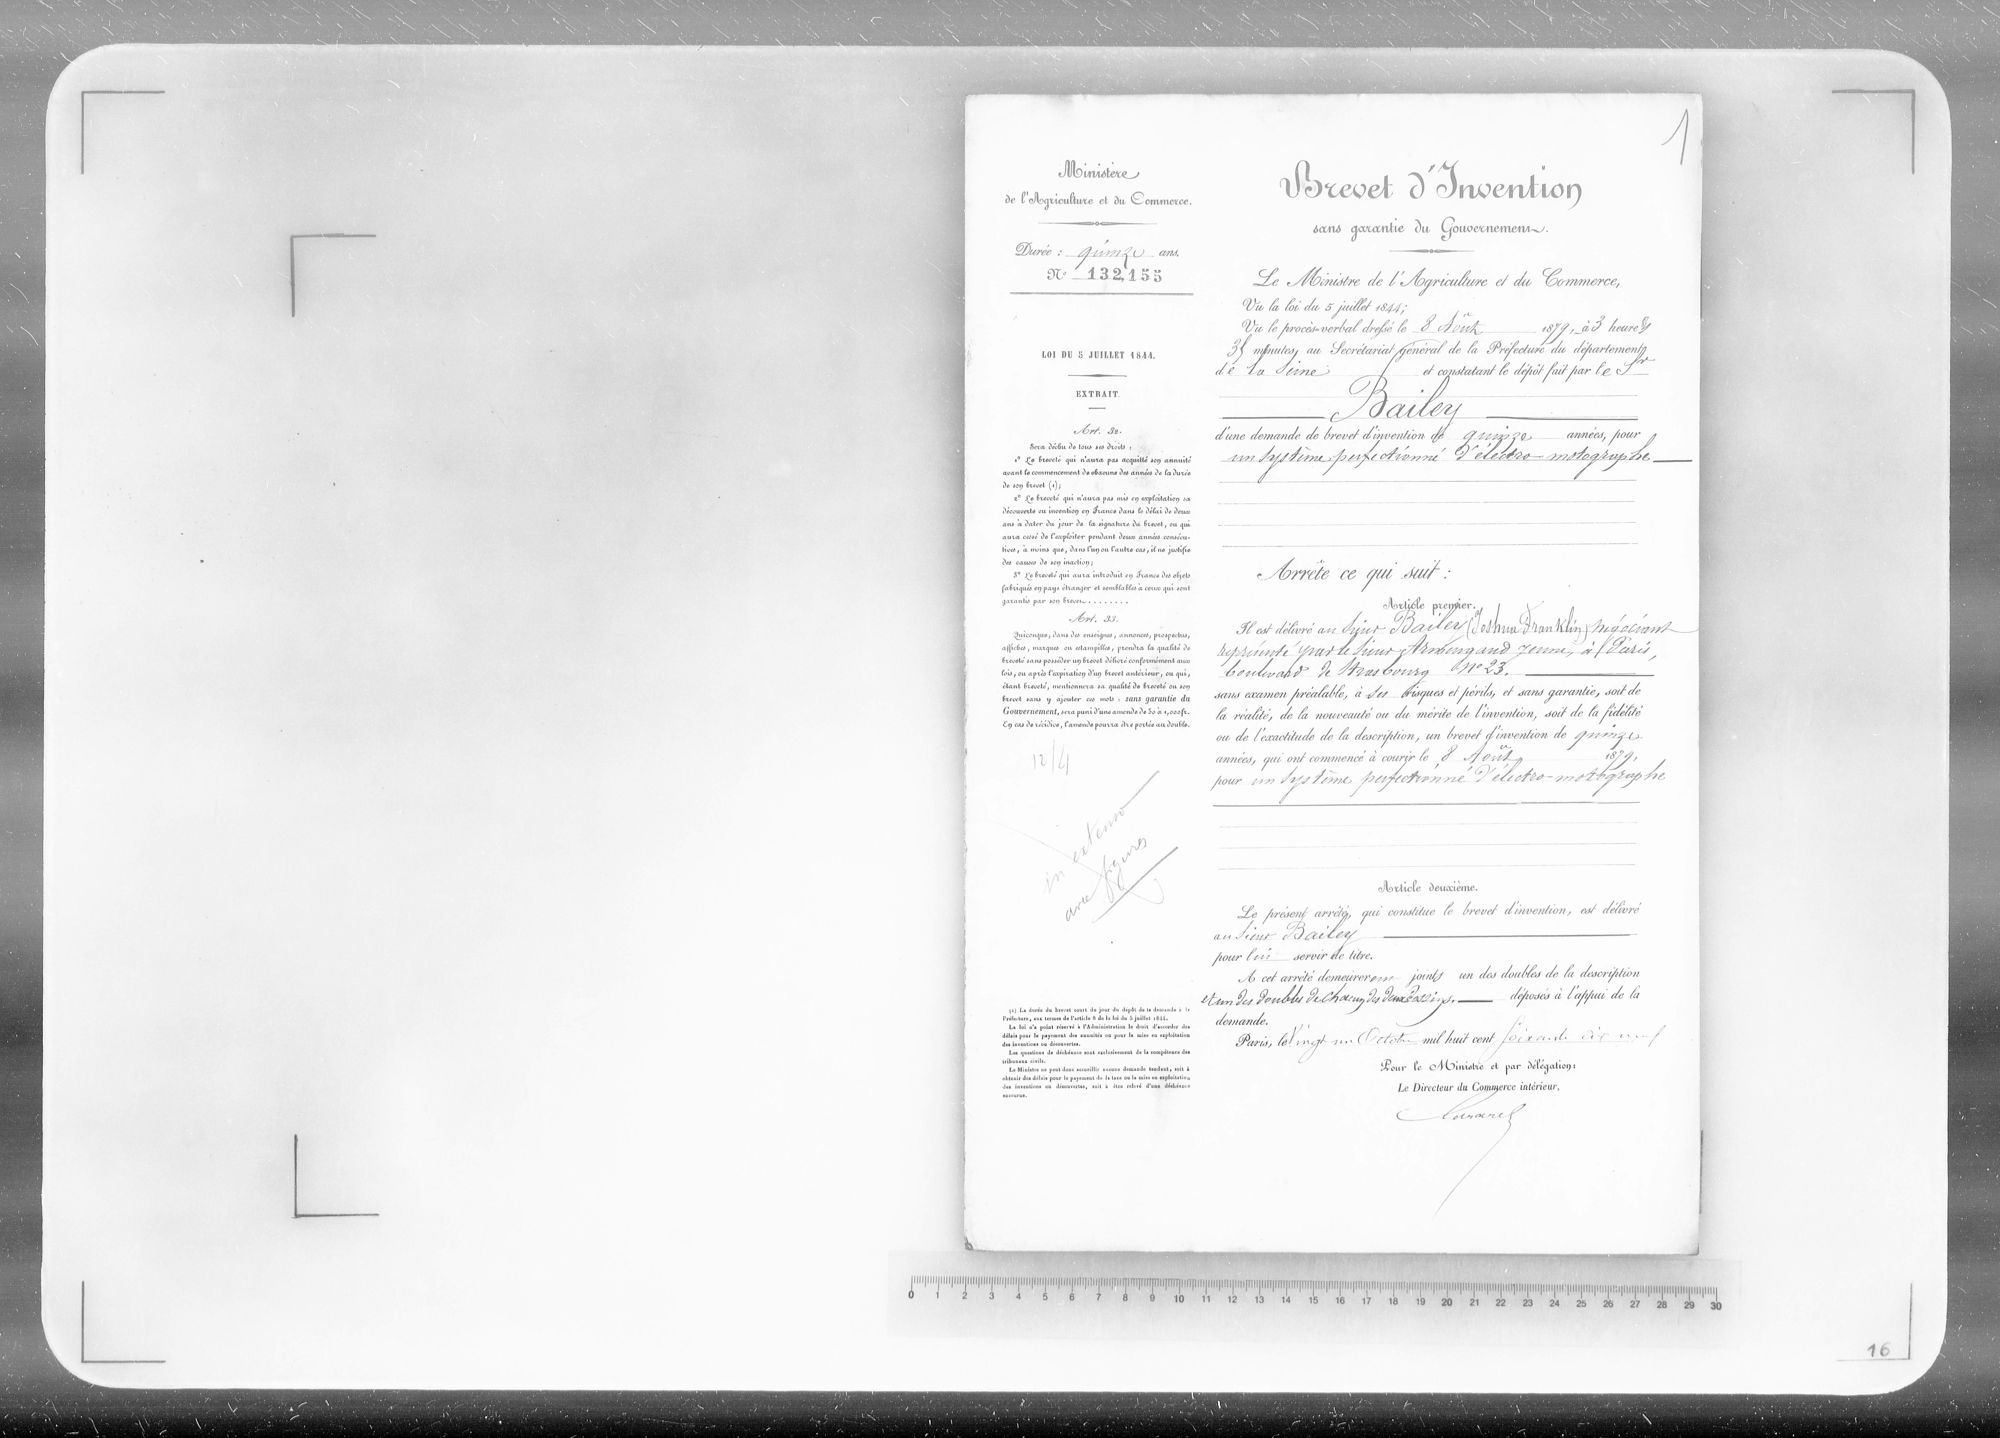 1
Ministère
de l'Agriculture et du Commerce.
Durée : quinze ans.
N° 132,155
LOI DU 5 JUILLET 1844.
EXTRAIT.
Art. 32.
Sera déchu de tous ses droits :
1° Le breveté qui n'aura pas acquitté son annuité
avant le commencement de chacune des années de la durée
de son brevet (1);
2° Le breveté qui n'aura pas mis en exploitation sa
découverte ou invention en France dans le délai de deux
ans à dater du jour de la signature du brevet, ou qui
aura cessé de l'exploiter pendant deux années consécu-
tives, à moins que, dans l'un ou l'autre cas, il ne justifie
des causes de son inaction;
3° Le breveté qui aura introduit en France des objets
fabriqués en pays étranger et semblables à ceux qui sont
garantis par son brevet........
Art. 33.
Quiconque, dans des enseignes, annonces, prospectus,
affiches, marques ou estampilles, prendra la qualité de
breveté sans posséder un brevet délivré conformément aux
lois, ou après l'expiration d'un brevet antérieur, ou qui,
étant breveté, mentionnera sa qualité de breveté ou son
brevet sans y ajouter ces mots : sans garantie du
Gouvernement, sera puni d'une amende de 50 à 1,000 fr.
En cas de récidive, l'amende pourra être portée au double.
12/4
in extenso
avec figures
(1) La durée du brevet court du jour du dépôt de la demande à la
Préfecture, aux termes de l'article 8 de la loi du 5 juillet 1844.
La loi n'a point réservé à l'Administration le droit d'accorder des
délais pour le payement des annuités ou pour la mise en exploitation
des inventions ou découvertes.
Les questions de déchéance sont exclusivement de la compétence des
tribunaux civils.
Le Ministre ne peut donc accueillir aucune demande tendant, soit à
obtenir des délais pour le payement de la taxe ou la mise en exploitation
des inventions ou découvertes, soit à être relevé d'une déchéance
encourue.
Brevet d'Invention
sans garantie du Gouvernement.
Le Ministre de l'Agriculture et du Commerce,
Vu la loi du 5 juillet 1844;
Vu le procès-verbal dressé le 8 Août 1879, à 3 heures
35 minutes, au Secrétariat général de la Préfecture du département
de la Seine et constatant le dépôt fait par le Sr
Bailey
d'une demande de brevet d'invention de quinze années, pour
un système perfectionné d'électro-motographe
Arrête ce qui suit :
Article premier.
Il est délivré au Sieur Bailey (Joshua Franklin) négociant
représenté par le Sieur Armengaud jeune, à Paris,
boulevard de Strasbourg N° 23.
sans examen préalable, à ses risques et périls, et sans garantie, soit de
la réalité, de la nouveauté ou du mérite de l'invention, soit de la fidélité
ou de l'exactitude de la description, un brevet d'invention de quinze
années, qui ont commencé à courir le 8 Août 1879,
pour un système perfectionné d'électro-motographe
Article deuxième.
Le présent arrêté, qui constitue le brevet d'invention, est délivré
au Sieur Bailey
pour lui servir de titre.
A cet arrêté demeureront joints un des doubles de la description
et un des doubles de chacun des deux dessins. déposés à l'appui de la
demande.
Paris, le vingt un Octobre mil huit cent soixante dix neuf
Pour le Ministre et par délégation:
Le Directeur du Commerce intérieur,
0 1 2 3 4 5 6 7 8 9 10 11 12 13 14 15 16 17 18 19 20 21 22 23 24 25 26 27 28 29 30
16